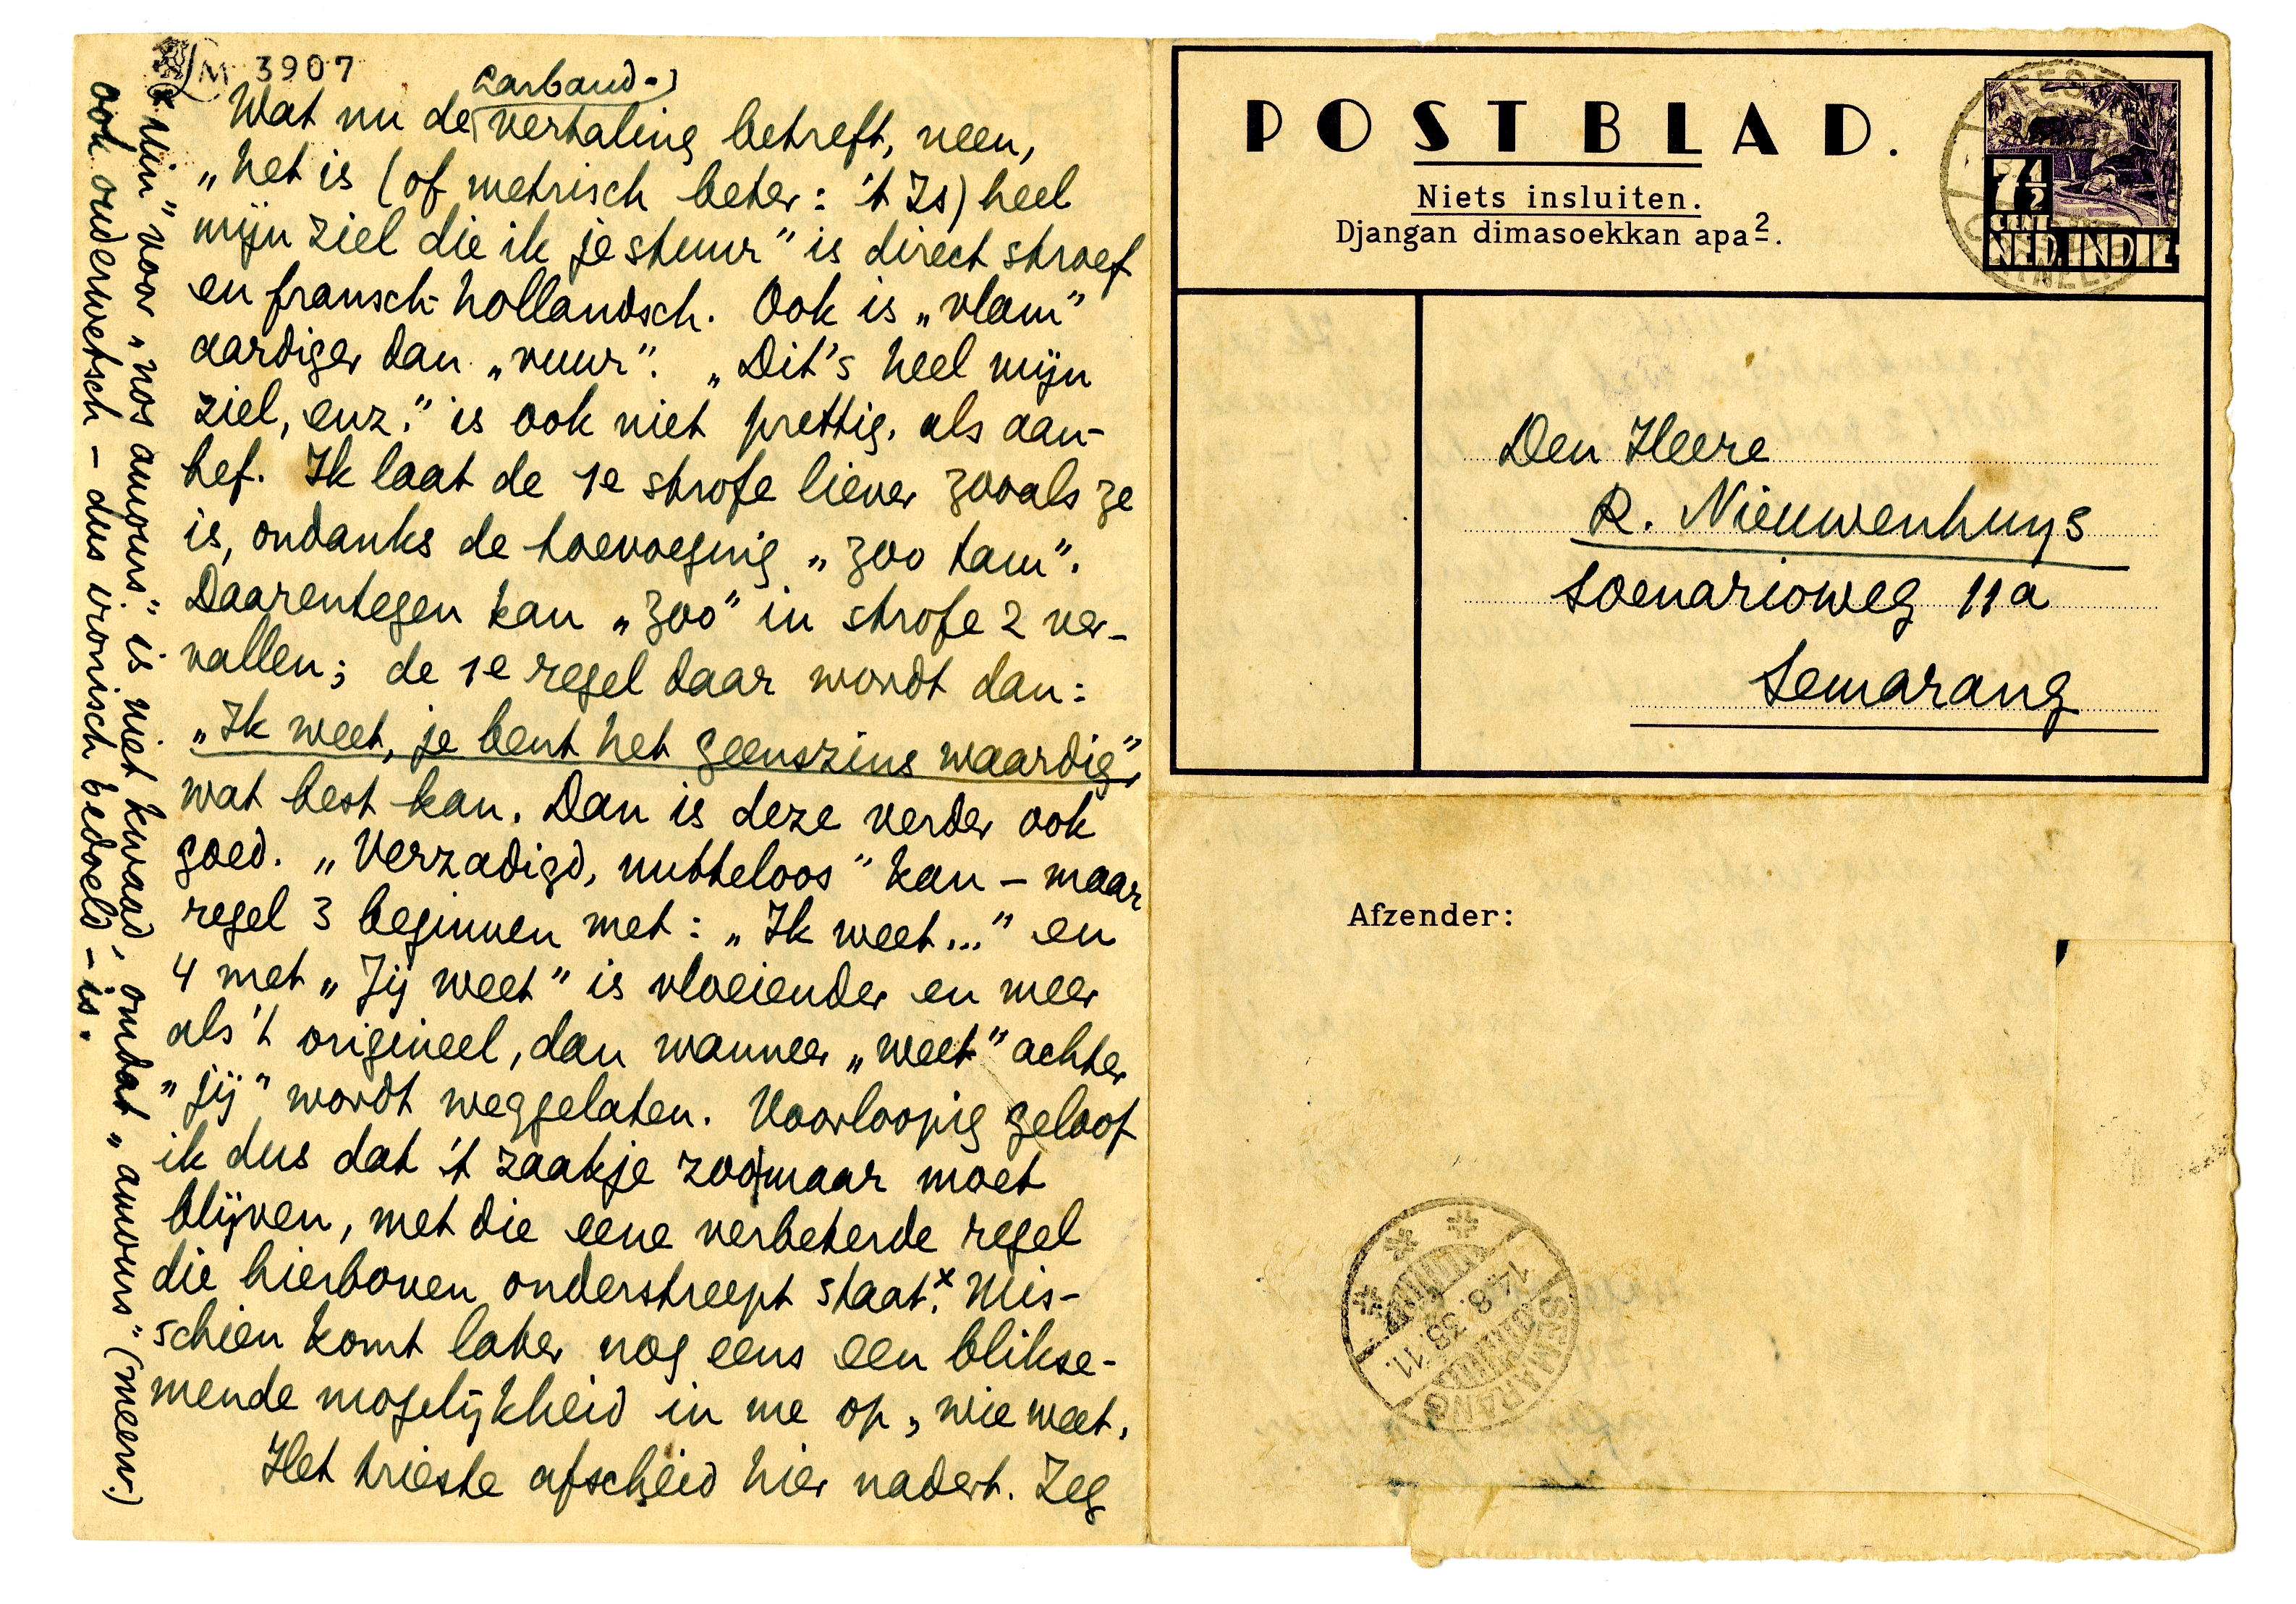 LM 3907
Larbaud-)
Wat nu de vertaling betreft, neen,
„het is (of metrisch beter: 't Is) heel
mijn ziel die ik je stuur" is direct stroef
en fransch-hollandsch. Ook is „vlam"
aardiger dan „vuur". „Dit's heel mijn
ziel, enz." is ook niet prettig, als aan-
hef. Ik laat de 1e strofe liever zooals ze
is, ondanks de toevoeging „zoo tam".
Daarentegen kan „zoo" in strofe 2 ver-
vallen; de 1e regel daar wordt dan:
„Ik weet, je bent het geenszins waardig",
wat best kan. Dan is deze verder ook
goed. „Verzadigd, nutteloos" kan – maar
regel 3 beginnen met: „Ik weet..." en
4 met „Jij weet" is vloeiender en meer
als 't origineel, dan wanneer „weet" achter
„jij" wordt weggelaten. Voorloopig geloof
ik dus dat 't zaakje zoo maar moet
blijven, met die eene verbeterde regel
die hierboven onderstreept staat.x Mis-
schien komt later nog eens een blikse-
mende mogelijkheid in me op, wie weet.
Het trieste afscheid hier nadert. Zeg
x „Min" voor „nos amours" is niet kwaad, omdat „amours" (meerv.)
ook ouderwetsch – dus ironisch bedoeld – is.
POSTBLAD.
Niets insluiten.
Djangan dimasoekkan apa2.
7½
CENT
NED. INDIE
Den Heere
R. Nieuwenhuys
Soenarioweg 11a
Semarang
Afzender:
14.8.38.11.
SEMARANG